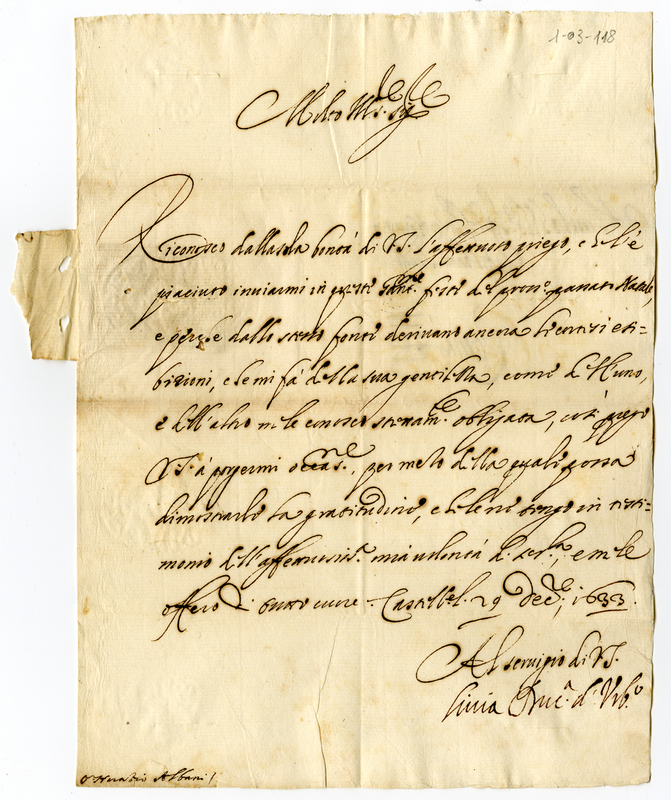 1-03-118
Molto Ill.re Sig.re
Riconosco dalla sola bontà di V.S. l'affettuoso priego, che l'è
piaciuto inviarmi in queste sante feste del pross.o passato Natale,
e perche dallo stesso fonte derivano ancora le cortesi esi=
bizioni, che mi fà della sua gentilezza, come dell'uno,
e dell'altro me le conosco strettam.te obligata, così prego
V.S. à porgermi occas.ne, per mezo della quale possa
dimostrarle la gratitudine, che le ne tengo in testi=
monio dell'affettuosiss.a mia volontà
offero di tutto cuore. Castell. 29 Dec.re 1633.
Al servigio di V.S.
Livia Duc.a d'Urb.o
S.r Horatio Albani